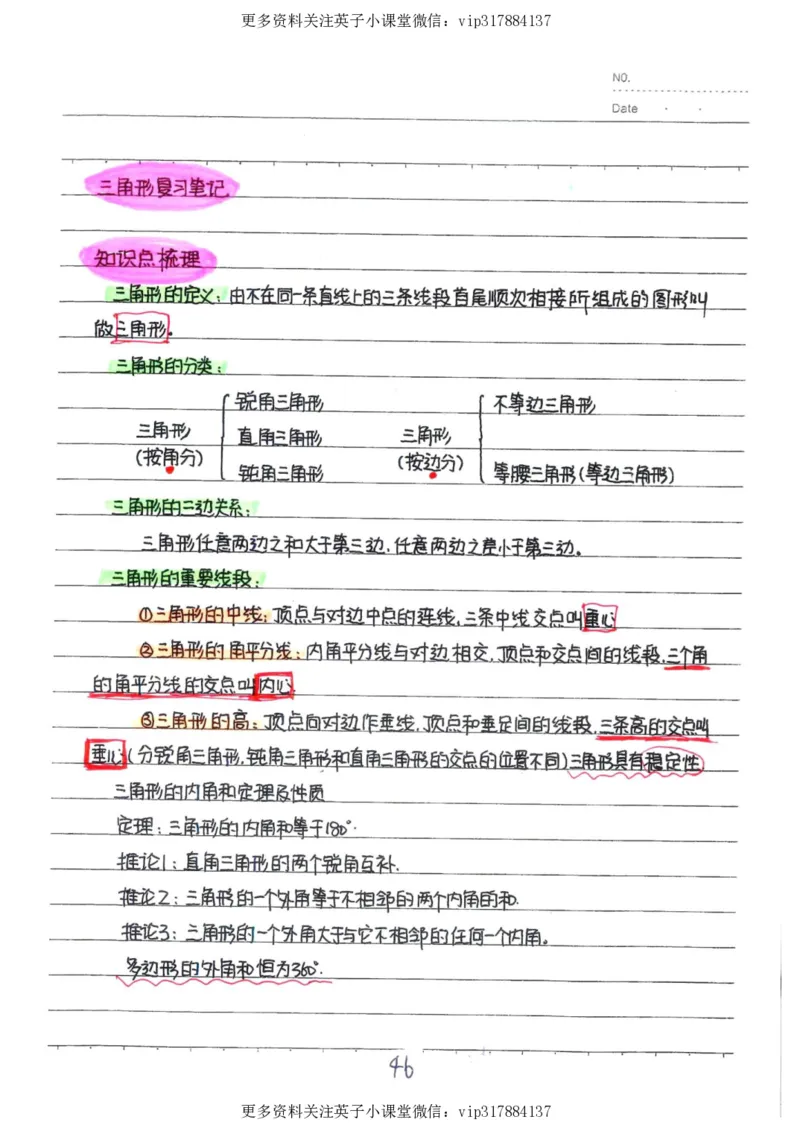 更多资料关注英子小课堂微信：vip317884137
NO.
Date
三角形复习笔记
知识点梳理
三角形的定义：由不在同一条直线上的三条线段首尾顺次相接所组成的图形叫
做三角形。
三角形的分类：
锐角三角形 不等边三角形
三角形 直角三角形 三角形
(按角分) (按边分)
钝角三角形 等腰三角形(等边三角形)
三角形的三边关系：
三角形任意两边之和大于第三边,任意两边之差小于第三边。
三角形的重要线段：
①三角形的中线：顶点与对边中点的连线,三条中线交点叫重心
②三角形的角平分线：内角平分线与对边相交,顶点和交点间的线段,三个角
的角平分线的交点叫内心.
③三角形的高：顶点向对边作垂线,顶点和垂足间的线段,三条高的交点叫
垂心(分锐角三角形,钝角三角形和直角三角形的交点的位置不同)三角形具有稳定性
三角形的内角和定理及性质
定理：三角形的内角和等于180°.
推论1：直角三角形的两个锐角互补.
推论2：三角形的一个外角等于不相邻的两个内角的和.
推论3：三角形的一个外角大于与它不相邻的任何一个内角。
多边形的外角和恒为360°.
46
更多资料关注英子小课堂微信：vip317884137